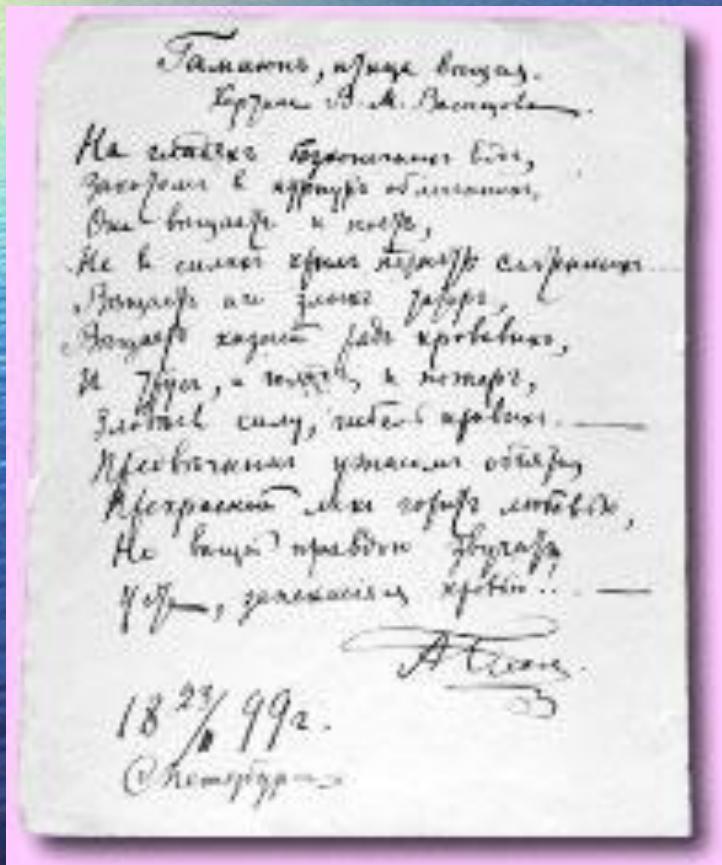 Гамаюнъ, птица вѣщая.
Картина В. М. Васнецова.
На гладяхъ безконечныхъ водъ,
Закатомъ в пурпуръ облеченныхъ,
Она вѣщаетъ и поетъ,
Не в силахъ крылъ поднять смятенныхъ...
Вѣщаетъ иго злыхъ татаръ,
Вѣщаетъ казней рядъ кровавыхъ,
И трусъ, и голодъ, и пожаръ,
Злодѣевъ силу, гибель правыхъ...
Предвѣчнымъ ужасомъ объятъ,
Прекрасный ликъ горитъ любовью,
Но вѣщей правдою звучатъ
Уста, запекшіяся кровью!..
А Блокъ.
18 23/II 99 г.
С Петербургъ